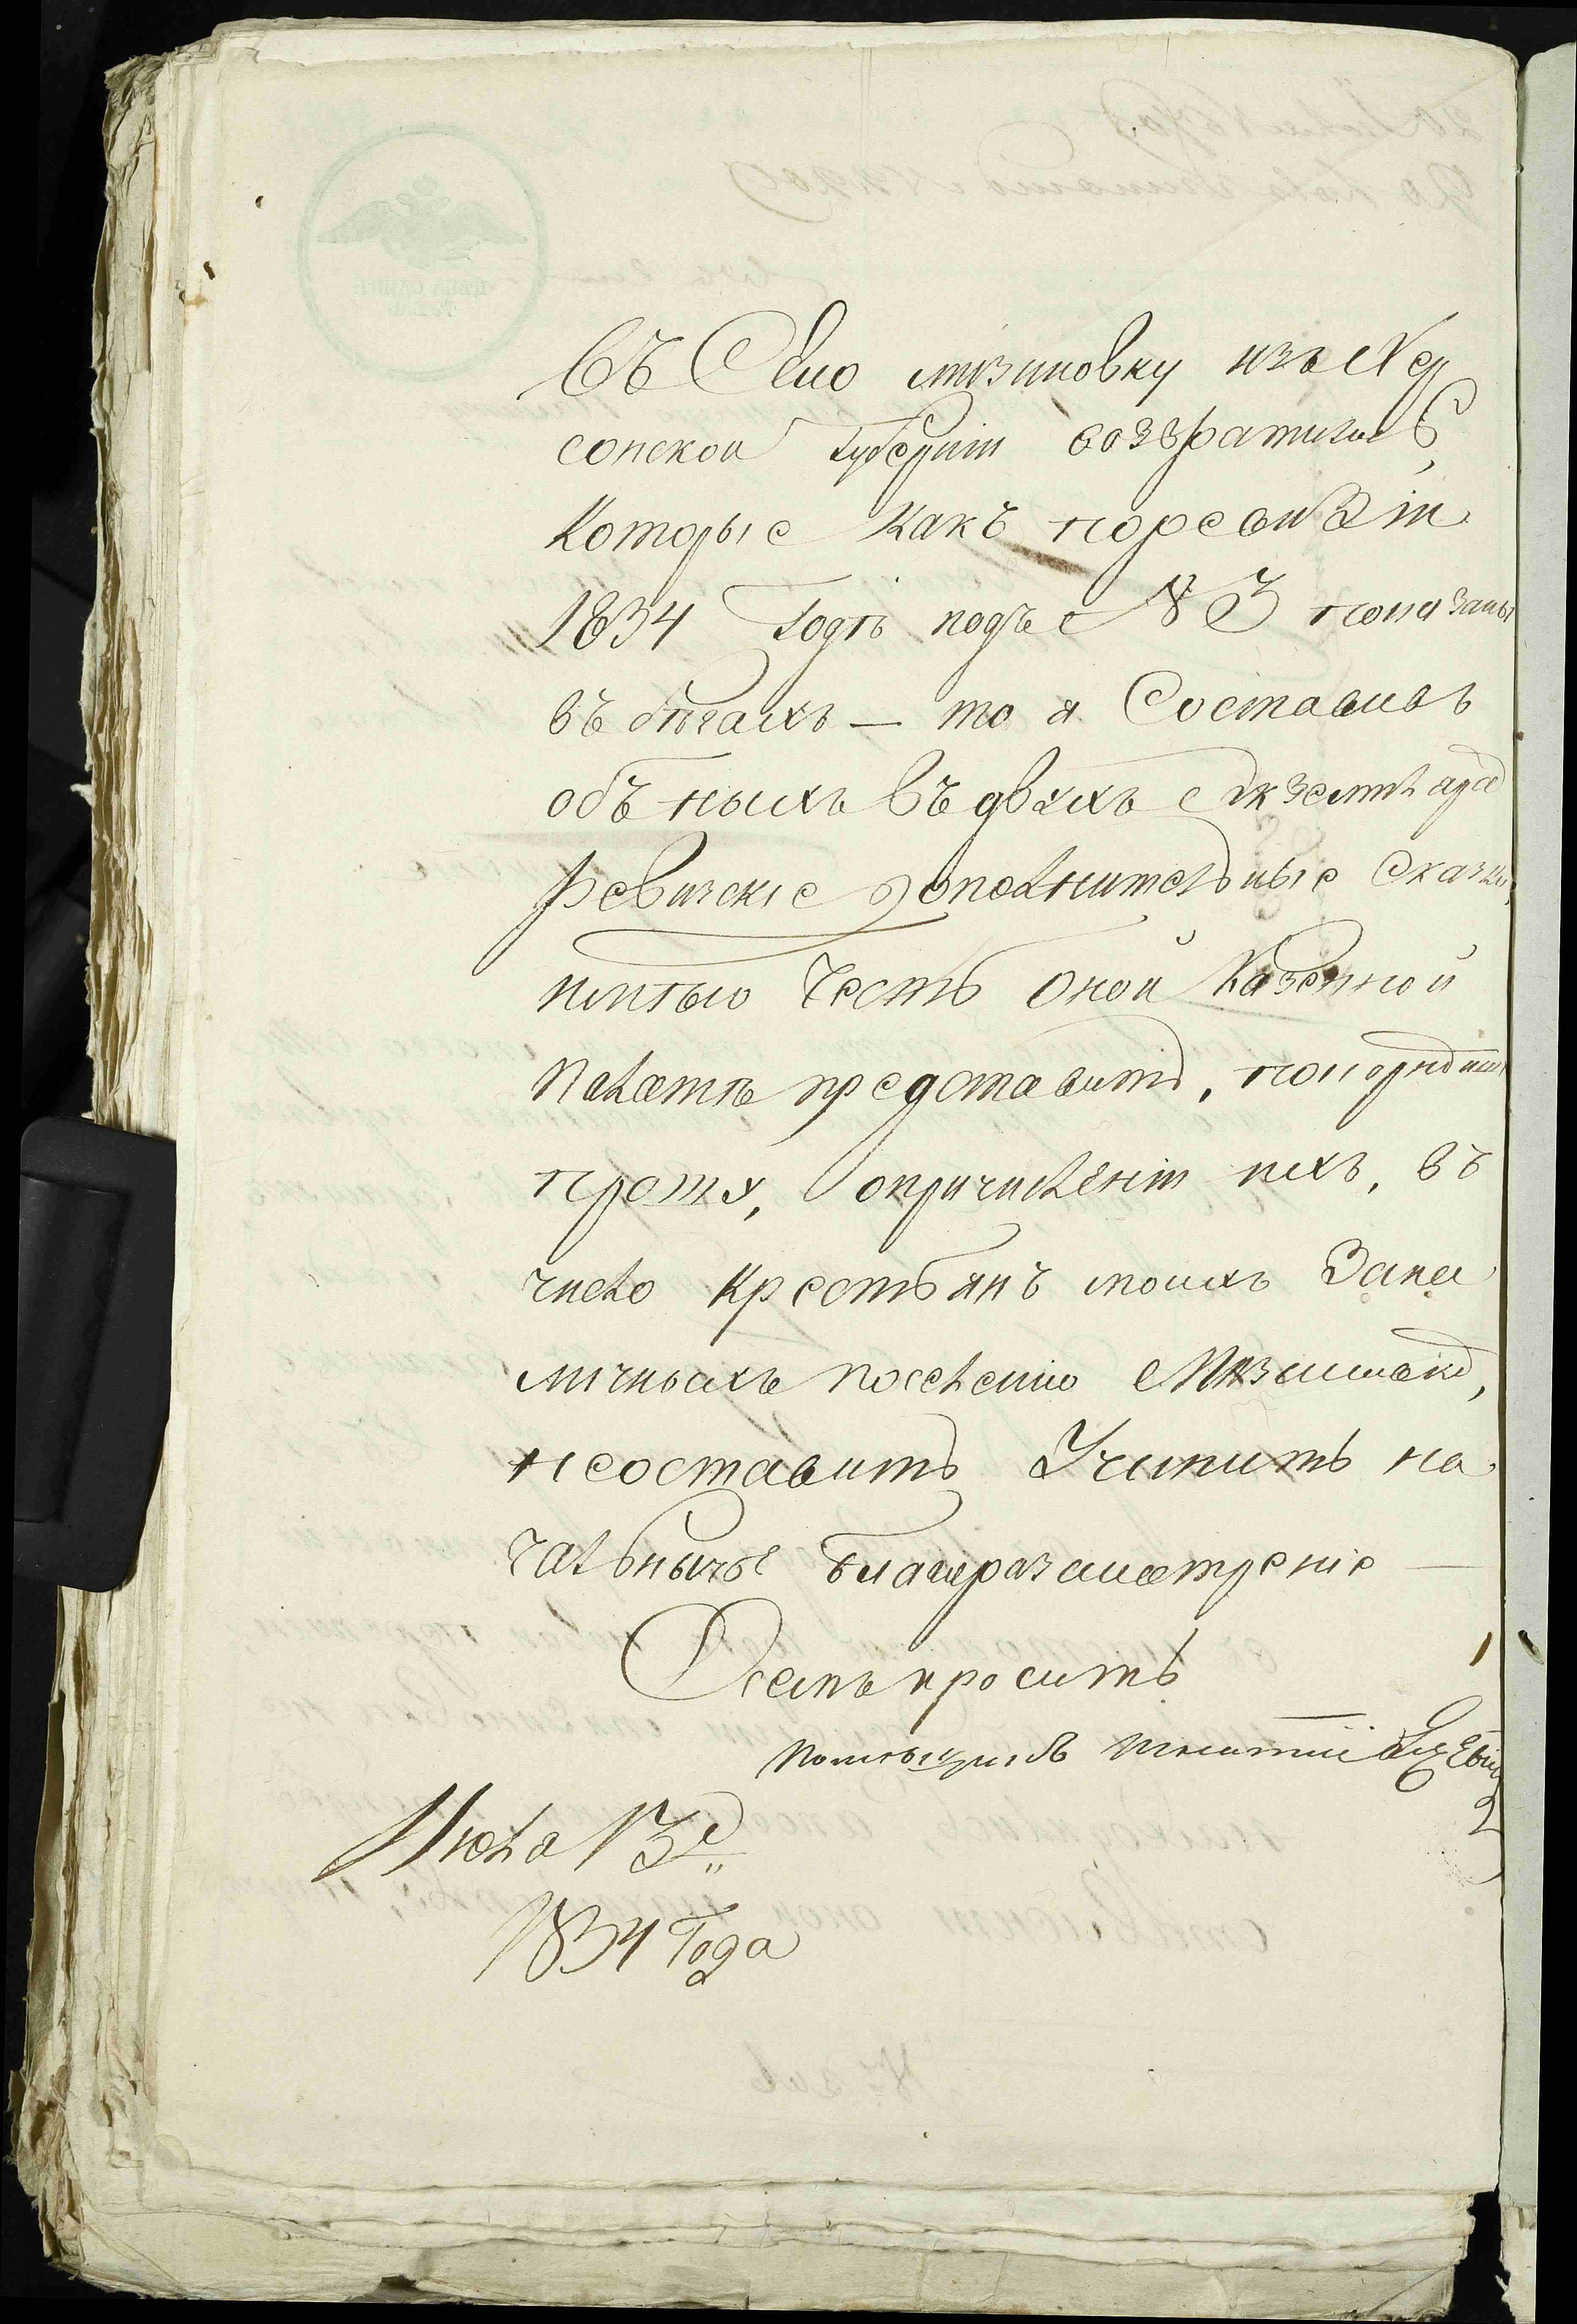 въ Село мизиновку изъ Хер
сонской губерніи возвратились,
которые какъ поревизіи
1834 годъ подъ № 3 показаны
въ бѣгахъ — то я Составивъ
объ ныхъ въ двухъ екземпляра
Ревизскіе дополнительные сказки,
имѣю Честь оной Казенной
палатѣ представить, покорнѣйши
прошу, опричисленіи ихъ, въ
число крестьянъ моихъ Запи
мичныхъ поселенію Мизиновки,
неоставить Учинить на
чальничье благоразсмотреніе —
Осемъ проситъ
помѣщикъ Игнатій
Июля 13
1834 Года